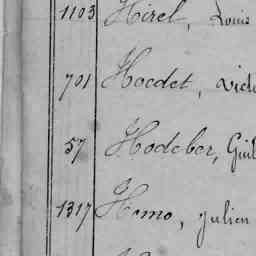 1103 Hirel, Louis
701 Hoedet, Victo
57 Hodeber, Guil
1317 Homo, Julien